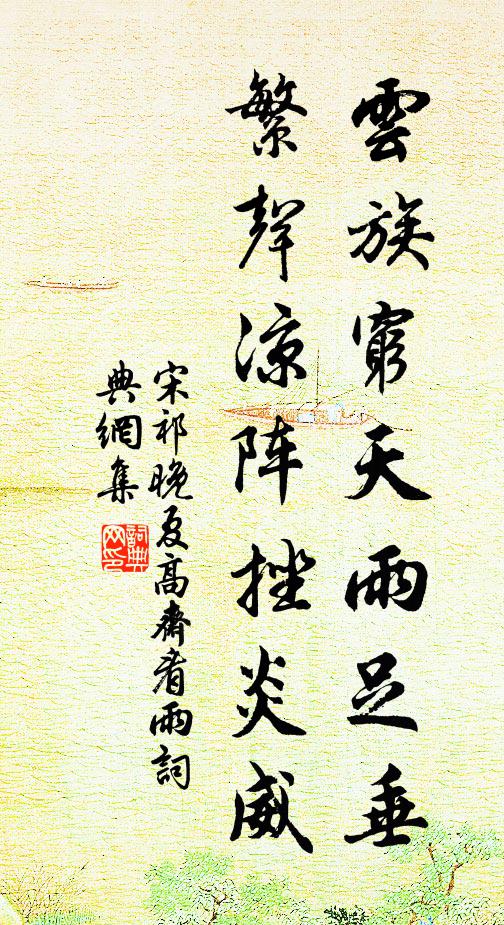 雲族窮天雨足垂
繁聲涼阵挫炎威
宋祁晚夏高齋看雨詞
典網集
詞典
网印